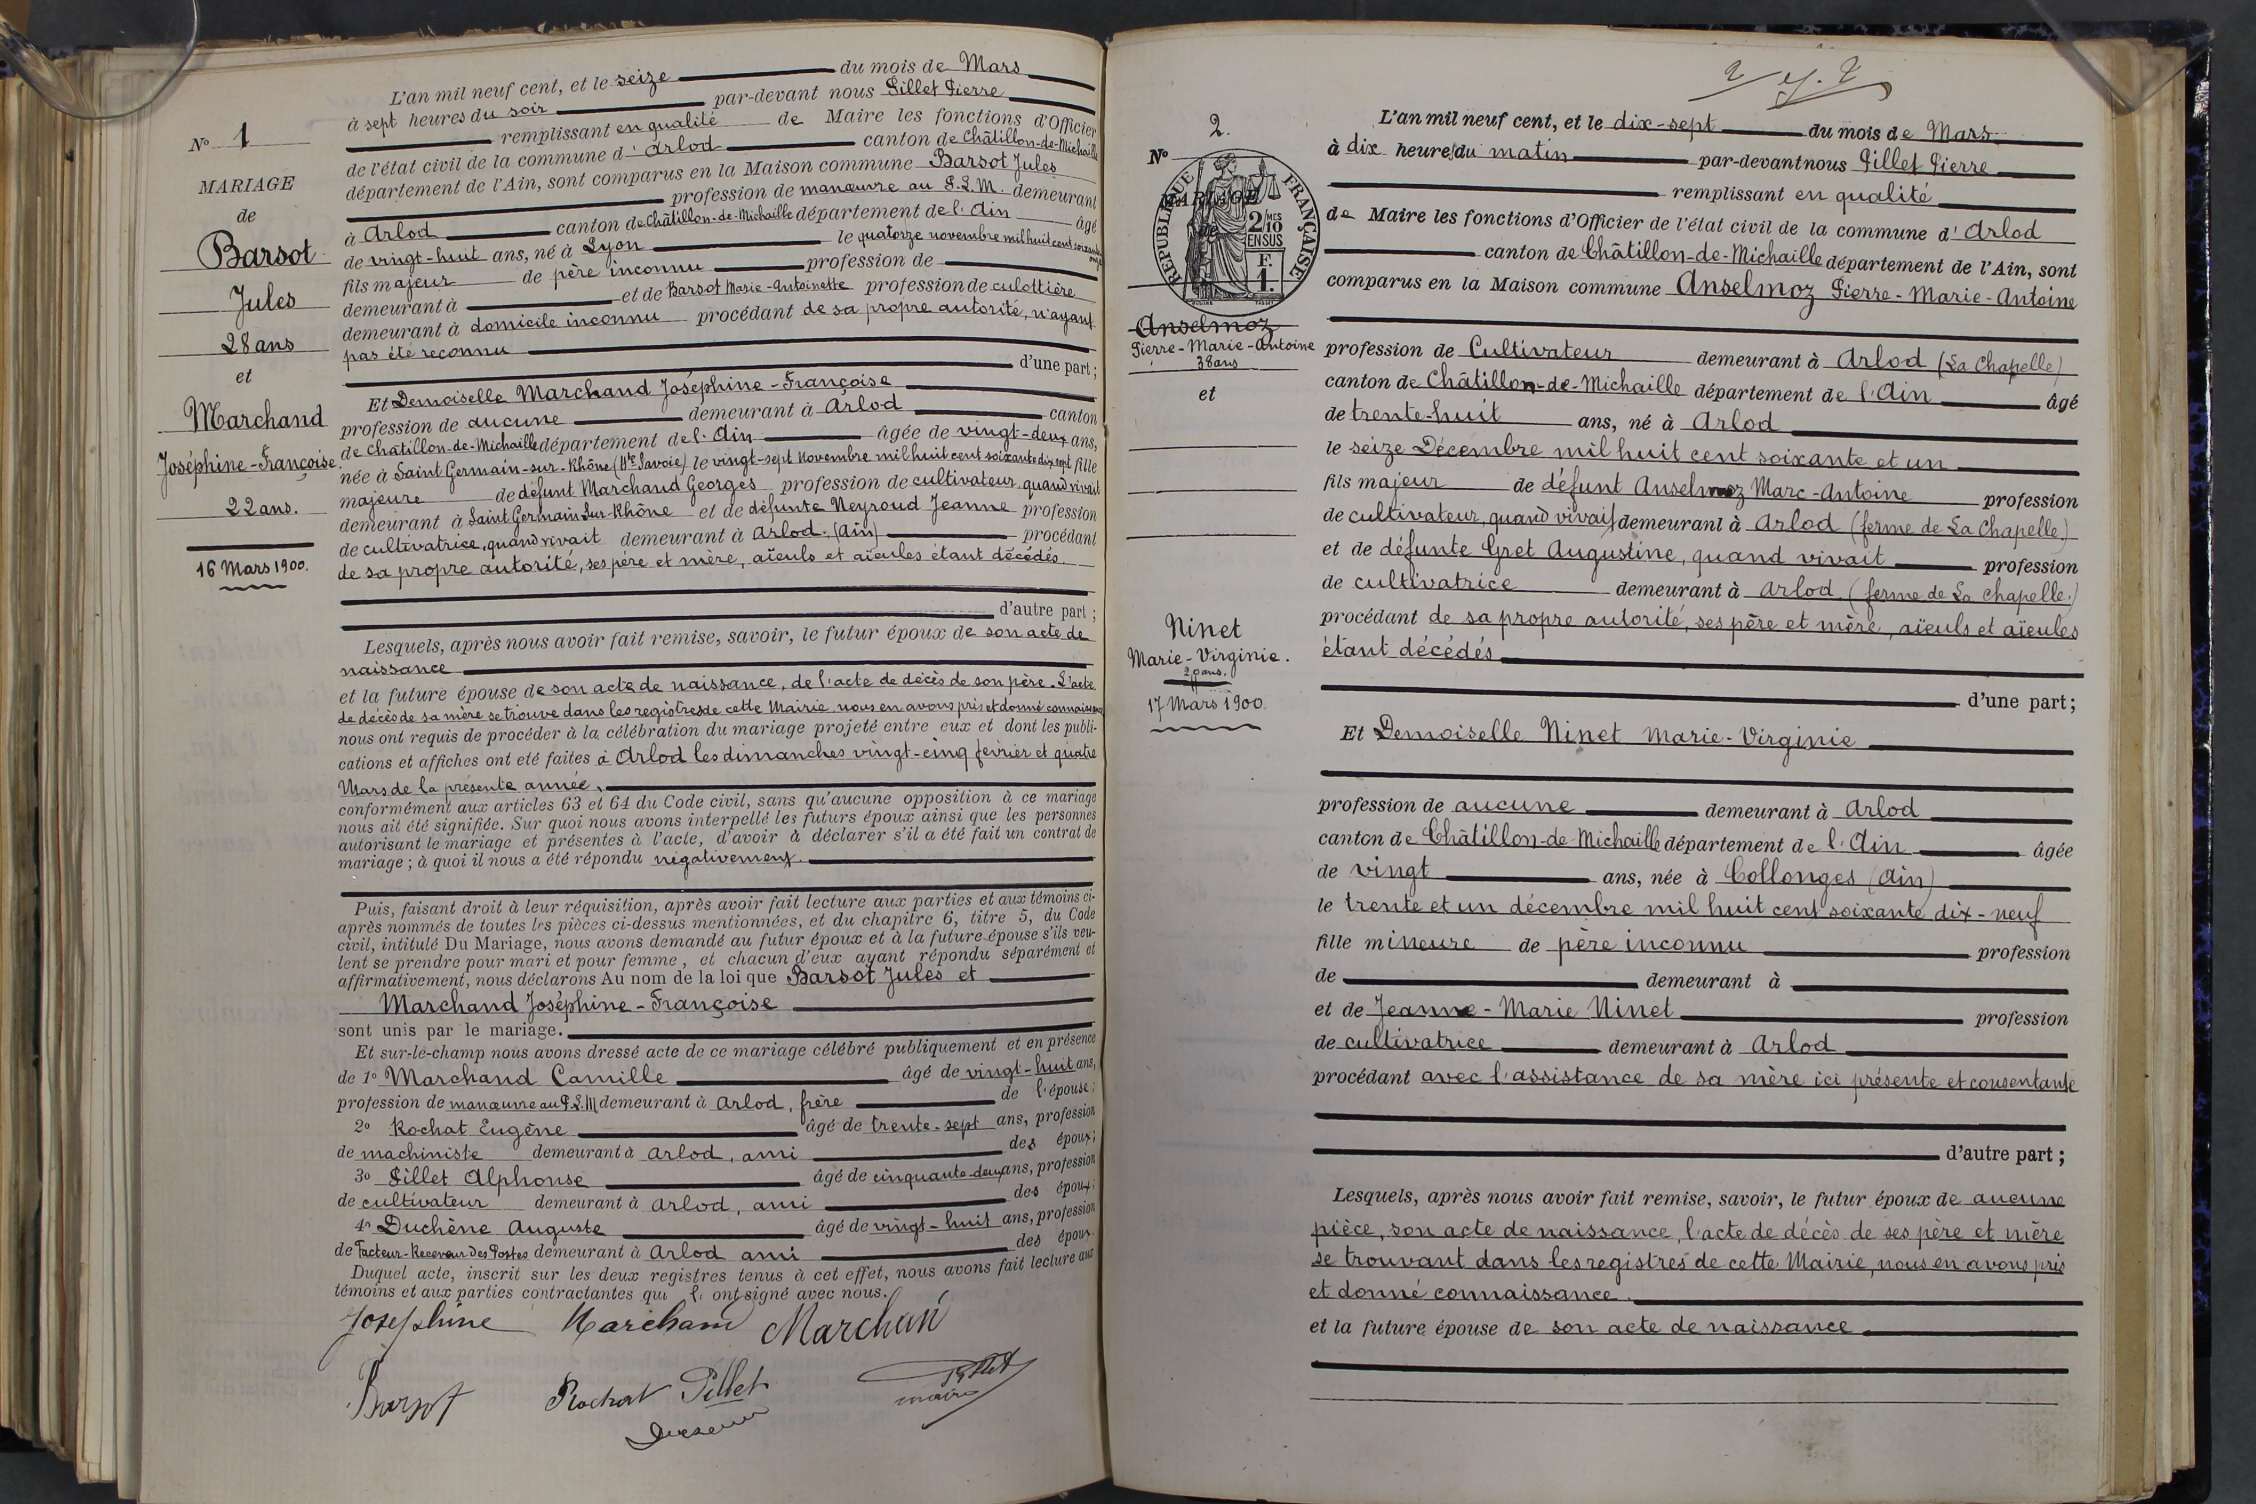 N° 1
MARIAGE
de
Barsot
Jules
28 ans
et
Marchand
Joséphine-Françoise
22 ans.
16 Mars 1900.
L'an mil neuf cent, et le seize du mois de Mars
à sept heures du soir par-devant nous Pillet Pierre
remplissant en qualité de Maire les fonctions d'Officier
de l'état civil de la commune d'Arlod canton de Châtillon-de-Michaille
département de l'Ain, sont comparus en la Maison commune Barsot Jules
profession de manœuvre au P.L.M. demeurant
à Arlod canton de Châtillon-de-Michaille département de l'Ain âgé
de vingt-huit ans, né à Lyon le quatorze novembre mil huit cent soixante onze
fils majeur de père inconnu profession de
demeurant à et de Barsot Marie-Antoinette profession de culottière
demeurant à domicile inconnu procédant de sa propre autorité, n'ayant
pas été reconnu
d'une part;
Et Demoiselle Marchand Joséphine-Françoise
profession de aucune demeurant à Arlod canton
de Châtillon-de-Michaille département de l'Ain âgée de vingt-deux ans,
née à Saint Germain-sur-Rhône (Hte Savoie) le vingt-sept Novembre mil huit cent soixante dix sept fille
majeure de défunt Marchand Georges profession de cultivateur, quand vivait
demeurant à Saint Germain-sur-Rhône et de défunte Neyroud Jeanne profession
de cultivatrice, quand vivait demeurant à Arlod (Ain) procédant
de sa propre autorité, ses père et mère, aïeuls et aïeules étant décédés
d'autre part;
Lesquels, après nous avoir fait remise, savoir, le futur époux de son acte de
naissance
et la future épouse de son acte de naissance, de l'acte de décès de son père. L'acte
de décès de sa mère se trouve dans les registres de cette Mairie nous en avons pris et donné connaissance
nous ont requis de procéder à la célébration du mariage projeté entre eux et dont les publi-
cations et affiches ont été faites à Arlod les dimanches vingt-cinq février et quatre
Mars de la présente année,
conformément aux articles 63 et 64 du Code civil, sans qu'aucune opposition à ce mariage
nous ait été signifiée. Sur quoi nous avons interpellé les futurs époux ainsi que les personnes
autorisant le mariage et présentes à l'acte, d'avoir à déclarer s'il a été fait un contrat de
mariage; à quoi il nous a été répondu négativement.
Puis, faisant droit à leur réquisition, après avoir fait lecture aux parties et aux témoins ci-
après nommés de toutes les pièces ci-dessus mentionnées, et du chapitre 6, titre 5, du Code
civil, intitulé Du Mariage, nous avons demandé au futur époux et à la future épouse s'ils veu-
lent se prendre pour mari et pour femme, et chacun d'eux ayant répondu séparément et
affirmativement, nous déclarons Au nom de la loi que Barsot Jules et
Marchand Joséphine-Françoise
sont unis par le mariage.
Et sur-le-champ nous avons dressé acte de ce mariage célébré publiquement et en présence
de 1° Marchand Camille âgé de vingt-huit ans,
profession de manœuvre au P.L.M demeurant à Arlod, frère de l'épouse;
2° Rochat Eugène âgé de trente-sept ans, profession
de machiniste demeurant à Arlod, ami des époux;
3° Pillet Alphonse âgé de cinquante-deux ans, profession
de cultivateur demeurant à Arlod, ami des époux;
4° Duchêne Auguste âgé de vingt-huit ans, profession
de Facteur-Receveur des Postes demeurant à Arlod ami des époux.
Duquel acte, inscrit sur les deux registres tenus à cet effet, nous avons fait lecture aux
témoins et aux parties contractantes qui l'ont signé avec nous.
Joséphine Marchand Marchan
Barsot Rochat Pillet Pillet
maire
2
N°
MARIAGE
de
RÉPUBLIQUE FRANÇAISE
2/10 MES
EN SUS
F.
1.
Anselmoz
Pierre-Marie-Antoine
38 ans
et
Ninet
Marie-Virginie.
20 ans.
17 Mars 1900.
L'an mil neuf cent, et le dix-sept du mois de Mars
à dix heures du matin par-devant nous Pillet Pierre
remplissant en qualité
de Maire les fonctions d'Officier de l'état civil de la commune d'Arlod
canton de Châtillon-de-Michaille département de l'Ain, sont
comparus en la Maison commune Anselmoz Pierre-Marie-Antoine
profession de Cultivateur demeurant à Arlod (La Chapelle)
canton de Châtillon-de-Michaille département de l'Ain âgé
de trente-huit ans, né à Arlod
le seize Décembre mil huit cent soixante et un
fils majeur de défunt Anselmoz Marc-Antoine profession
de cultivateur, quand vivait demeurant à Arlod (ferme de La Chapelle)
et de défunte Gret Augustine, quand vivait profession
de cultivatrice demeurant à Arlod (ferme de La Chapelle.)
procédant de sa propre autorité, ses père et mère, aïeuls et aïeules
étant décédés
d'une part;
Et Demoiselle Ninet Marie-Virginie
profession de aucune demeurant à Arlod
canton de Châtillon-de-Michaille département de l'Ain âgée
de vingt ans, née à Collonges (Ain)
le trente et un décembre mil huit cent soixante dix-neuf
fille mineure de père inconnu profession
de demeurant à
et de Jeanne-Marie Ninet profession
de cultivatrice demeurant à Arlod
procédant avec l'assistance de sa mère ici présente et consentante
d'autre part;
Lesquels, après nous avoir fait remise, savoir, le futur époux de aucune
pièce, son acte de naissance, l'acte de décès de ses père et mère
se trouvant dans les registres de cette Mairie, nous en avons pris
et donné connaissance.
et la future épouse de son acte de naissance